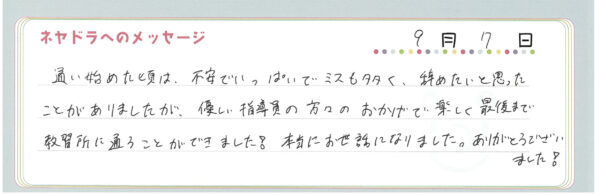 ネヤドラへのメッセージ
9月17日
通い始めた頃は、不安でいっぱいでミスも多く、辞めたいと思った
ことがありましたが、優しい指導員の方々のおかげで楽しく最後まで
教習所に通うことができました! 本当にお世話になりました。ありがとうござい
ました!